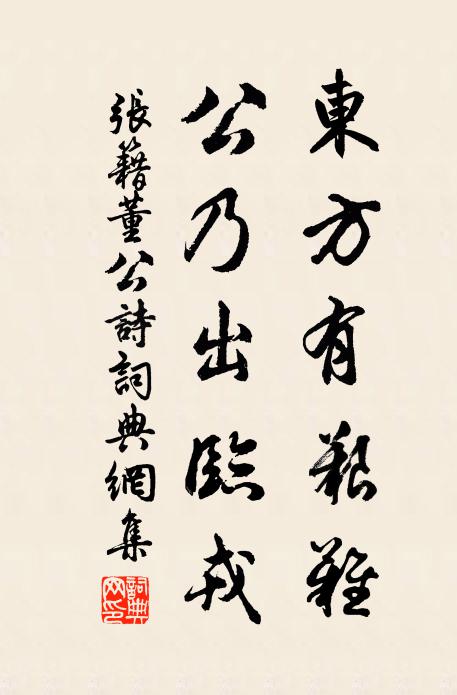 東方有艱難
公乃出臨戎
張籍董公詩詞典網集
詞典網印